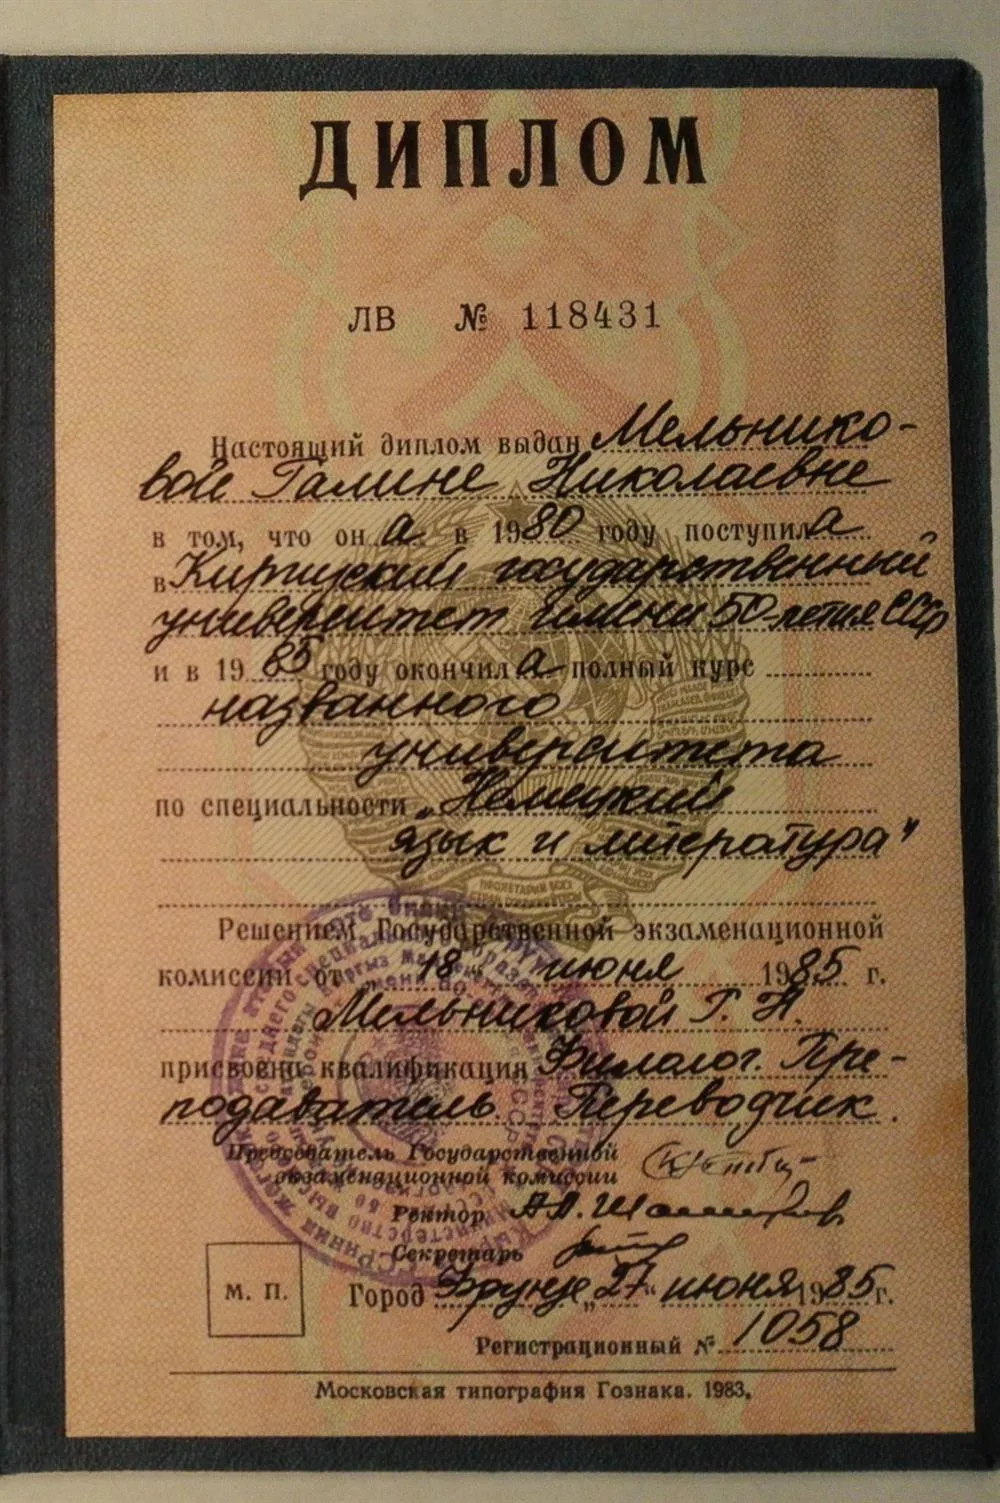 ДИПЛОМ
ЛВ № 118431
Настоящий диплом выдан Мельнико-
вой Галине Николаевне
в том, что он а в 1980 году поступила
в Киргизский государственный
университет имени 50-летия СССР
и в 1985 году окончила полный курс
названного
университета
по специальности „Немецкий
язык и литература"
Решением Государственной экзаменационной
комиссии от „18" июня 1985 г.
Мельниковой Г. Н.
присвоена квалификация Филолог. Пре-
подаватель. Переводчик.
Председатель Государственной
экзаменационной комиссии
Ректор
Секретарь
М. П.
Город Фрунзе „27" июня 1985 г.
Регистрационный № 1058
Московская типография Гознака. 1983.